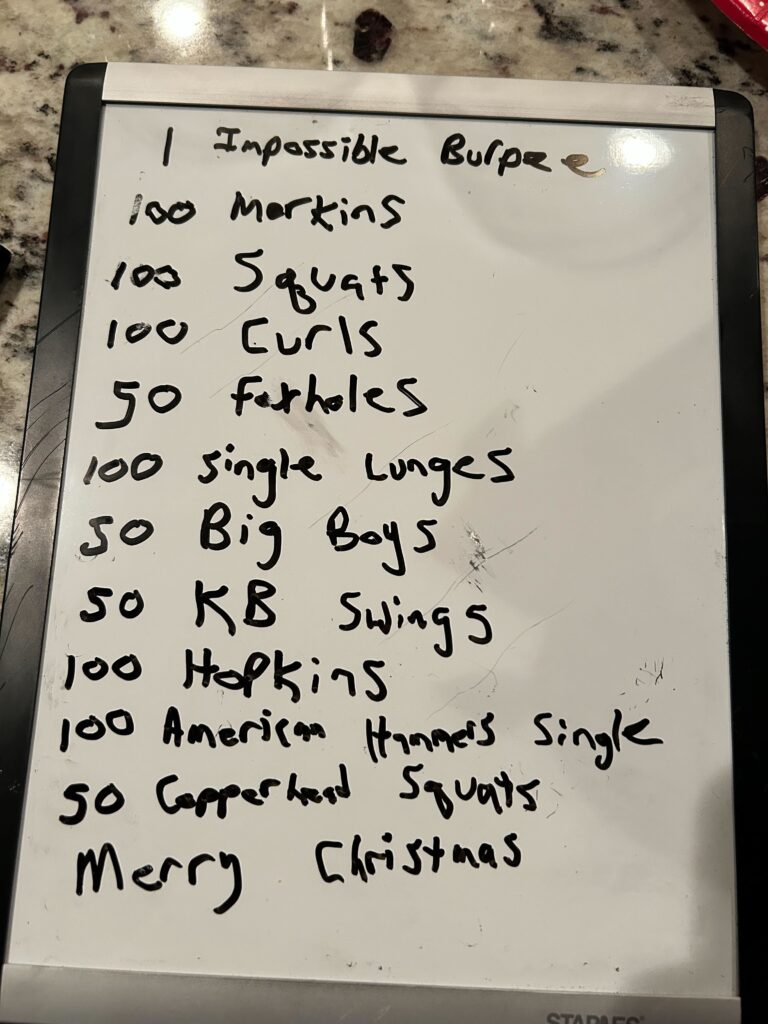 1 Impossible Burpee
100 Merkins
100 Squats
100 Curls
50 Foxholes
100 single Lunges
50 Big Boys
50 KB Swings
100 Hopkins
100 American Hammers Single
50 Copperhead Squats
Merry Christmas
STAPLES